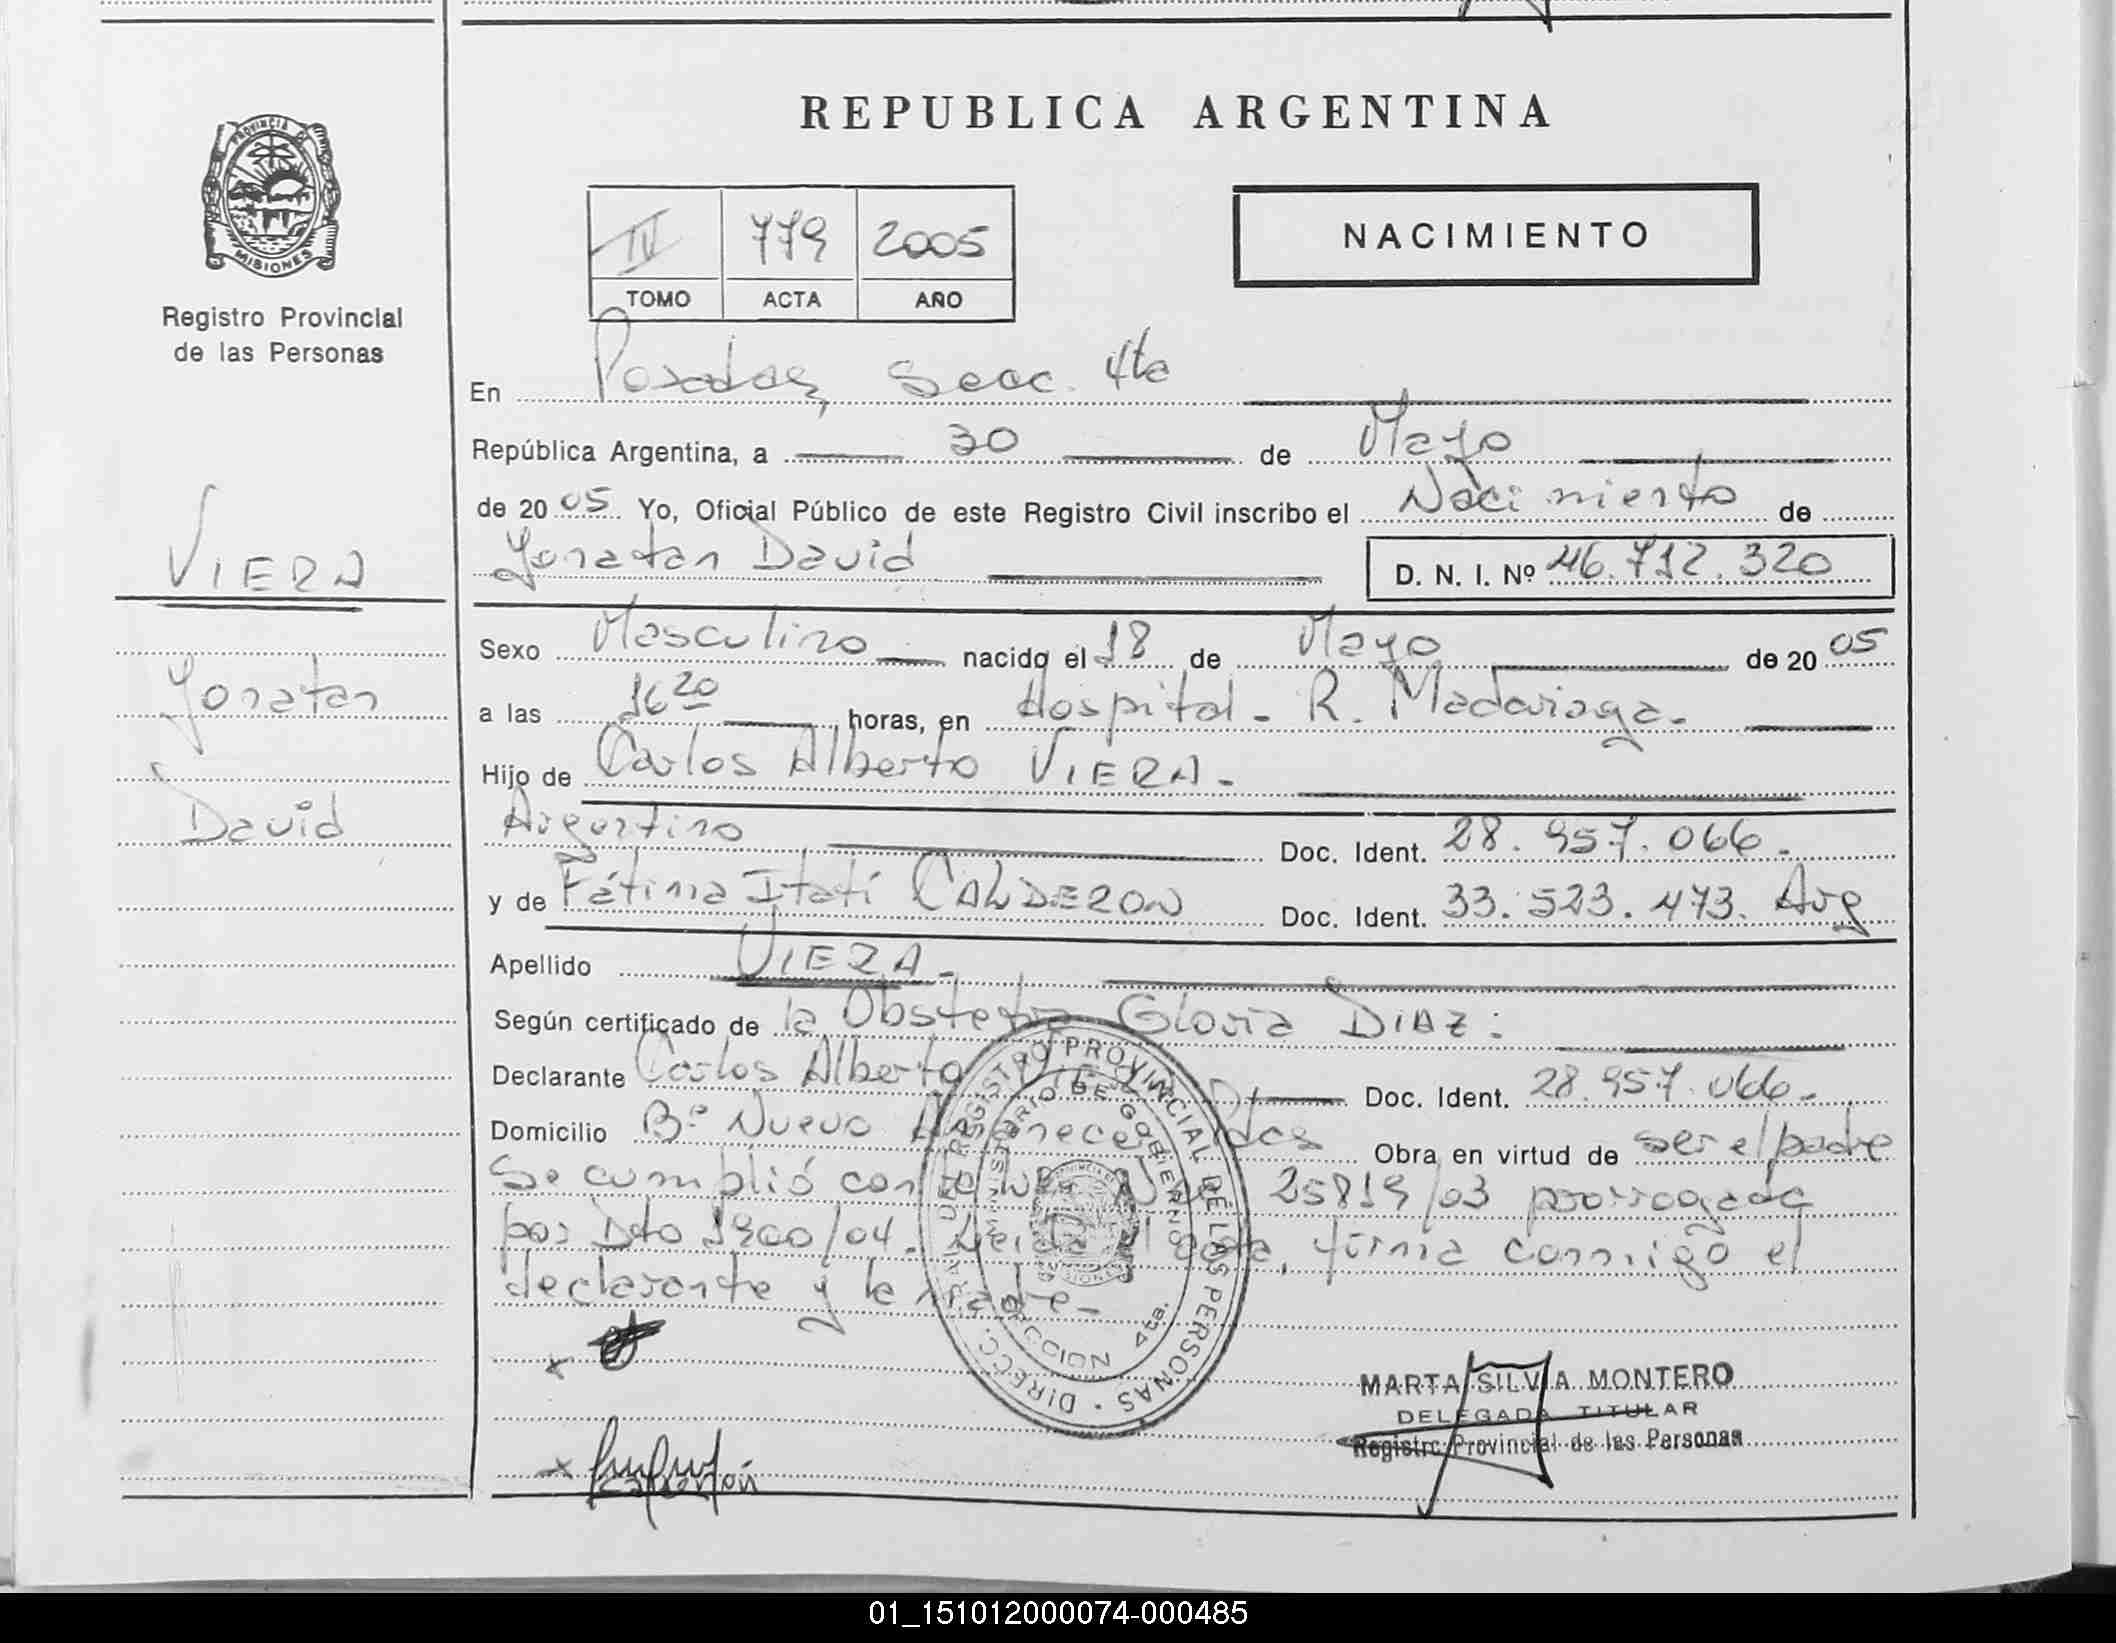 REPUBLICA ARGENTINA
PROVINCIA DE
MISIONES
Registro Provincial
de las Personas
IV 779 2005
TOMO ACTA AÑO
NACIMIENTO
En Posadas, Secc. 4ta
República Argentina, a 30 de Mayo
de 2005 Yo, Oficial Público de este Registro Civil inscribo el Nacimiento de
Yonatan David D. N. I. Nº 46.712.320
VIERA
Yonatan
David
Sexo Masculino nacido el 18 de Mayo de 2005
a las 16 20 horas, en Hospital - R. Madariaga.-
Hijo de Carlos Alberto VIERA.-
Argentino Doc. Ident. 28.957.066.-
y de Fátima Itatí CALDERON Doc. Ident. 33.523.473. Arg
Apellido VIERA.-
Según certificado de la Obstetra Gloria DIAZ.
Declarante Carlos Alberto VIERA Doc. Ident. 28.957.066.-
Domicilio Bº Nuevo Amanecer Pdas Obra en virtud de ser el padre
Se cumplió con la Ley Nº 25819/03 prorrogada
por Dto 1900/04. Leída el acta, firma conmigo el
declarante y la madre-
DIRECC. GRAL. DEL REGISTRO PROVINCIAL DE LAS PERSONAS
MINISTERIO DE GOBIERNO
SECCION 4ta.
MARTA SILVIA MONTERO
DELEGADA TITULAR
Registro Provincial de las Personas
x
x Calderón
01_151012000074-000485